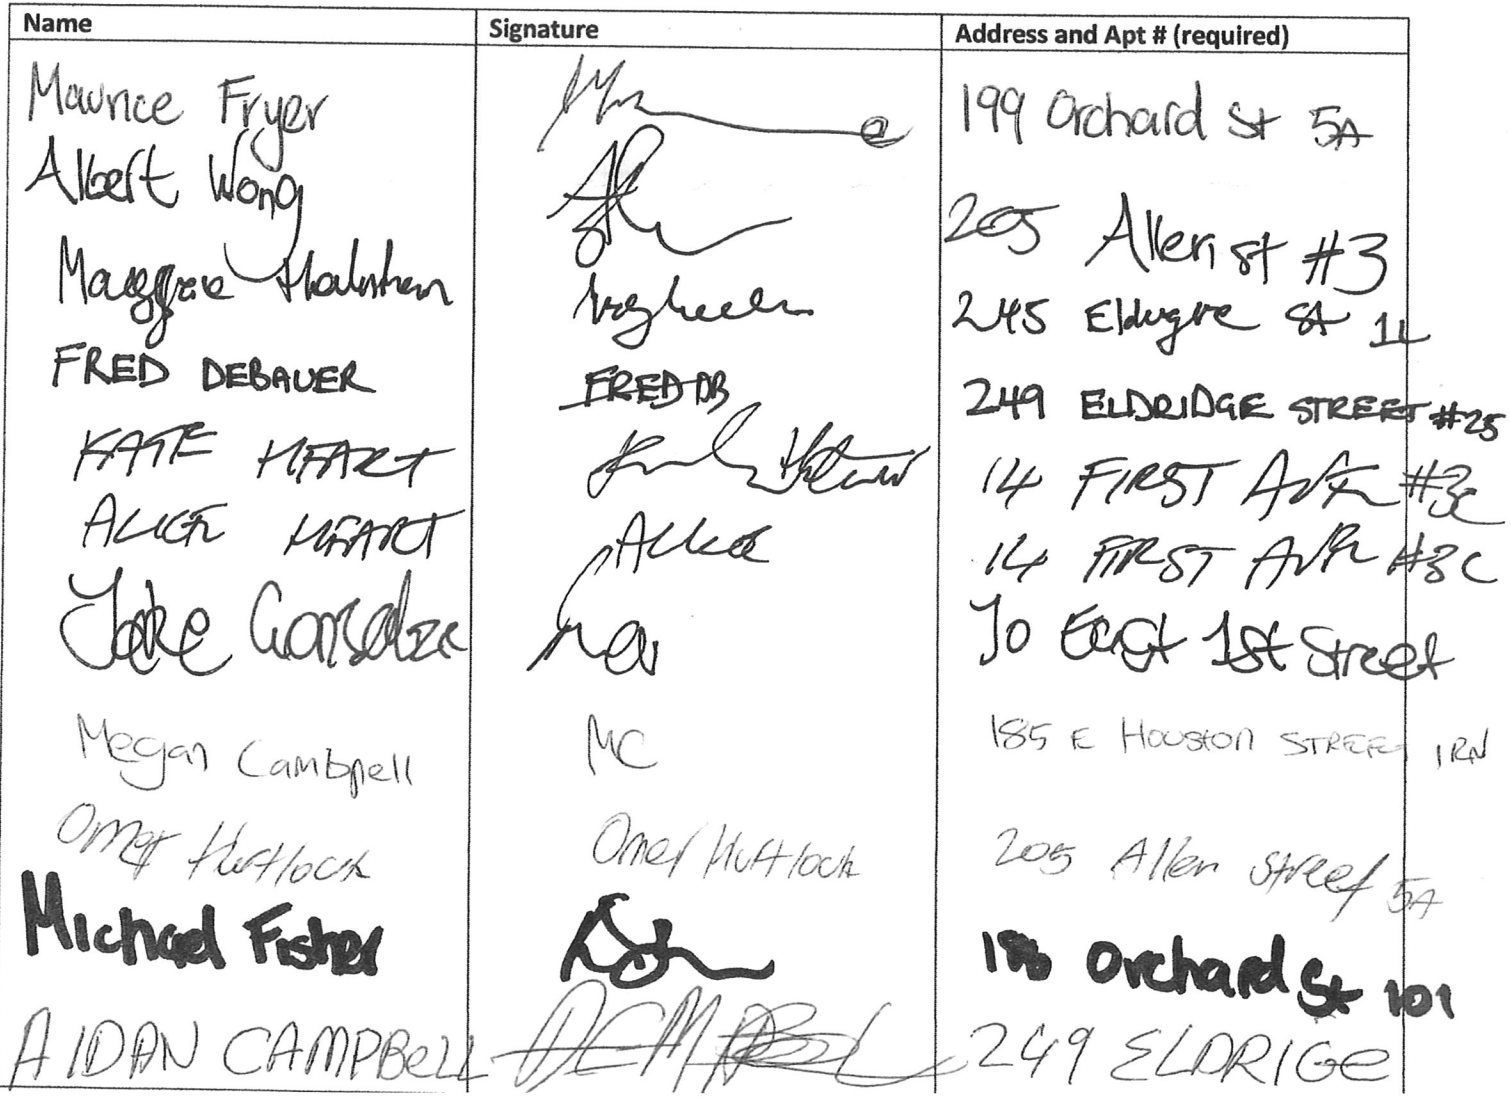 Name Signature Address and Apt # (required)
Maurice Fryer 199 Orchard St 5A
Albert Wong 205 Allen St #3
245 St 1L
FRED DEBAUER FRED DB 249 ELDRIDGE STREET #25
KATE HEART 14 FIRST AVE #3C
ALICE HEART Alice 14 FIRST AVE #3C
Jake 10 East 1st Street
Megan Cambpell MC 185 E Houston STREET 1RN
Omer Huttlock Omer Huttlock 205 Allen Street 5A
Michael Fisher Orchard St 101
AIDAN CAMPBELL 249 ELDRIGE